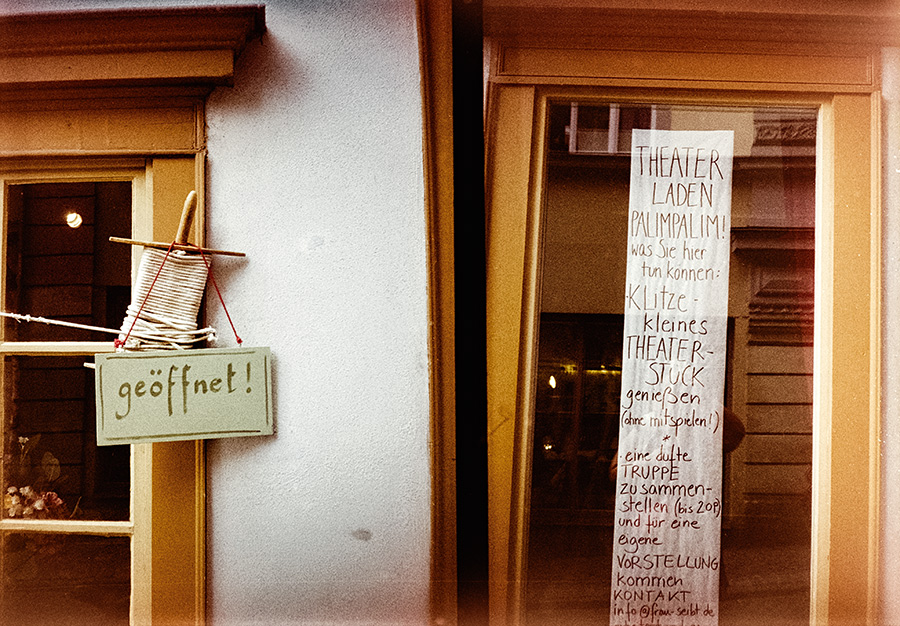 geöffnet!
THEATER
LADEN
PALIMPALIM!
was Sie hier
tun können:
·KLITZE-
kleines
THEATER-
STÜCK
genießen
(ohne mitspielen!)
*
·eine dufte
TRUPPE
zusammen-
stellen (bis 20P)
und für eine
eigene
VORSTELLUNG
kommen
KONTAKT
info@frau-seibt.de